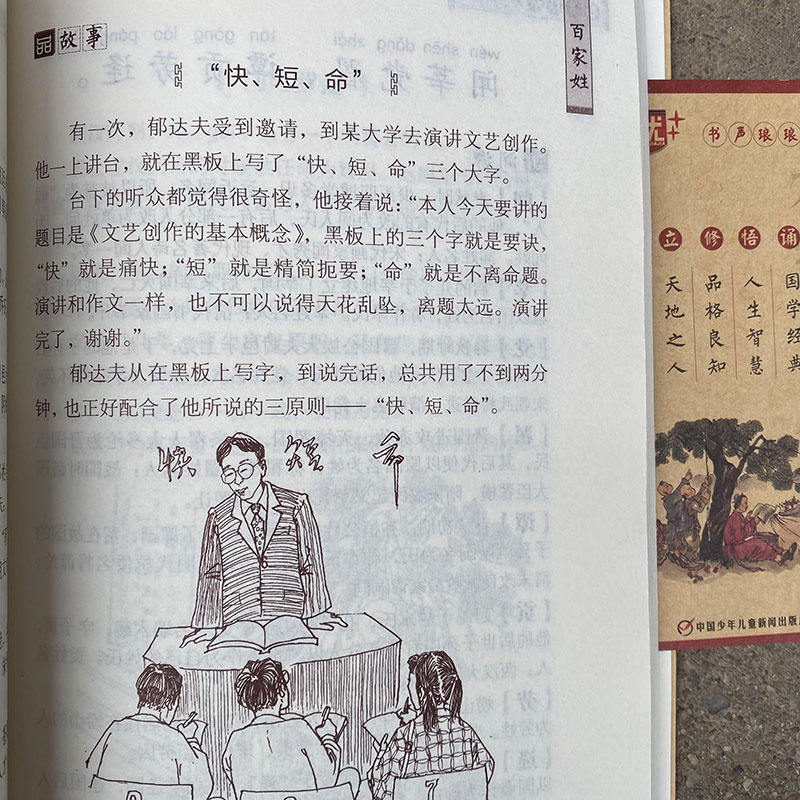 品故事
百家姓
“快、短、命”
有一次，郁达夫受到邀请，到某大学去演讲文艺创作。
他一上讲台，就在黑板上写了“快、短、命”三个大字。
台下的听众都觉得很奇怪，他接着说：“本人今天要讲的
题目是《文艺创作的基本概念》，黑板上的三个字就是要诀，
“快”就是痛快；“短”就是精简扼要；“命”就是不离命题。
演讲和作文一样，也不可以说得天花乱坠，离题太远。演讲
完了，谢谢。”
郁达夫从在黑板上写字，到说完话，总共用了不到两分
钟，也正好配合了他所说的三原则——“快、短、命”。
快 短 命
优++
书声琅琅
立 修 悟 诵
天地之人
品格良知
人生智慧
国学经典
中国少年儿童新闻出版